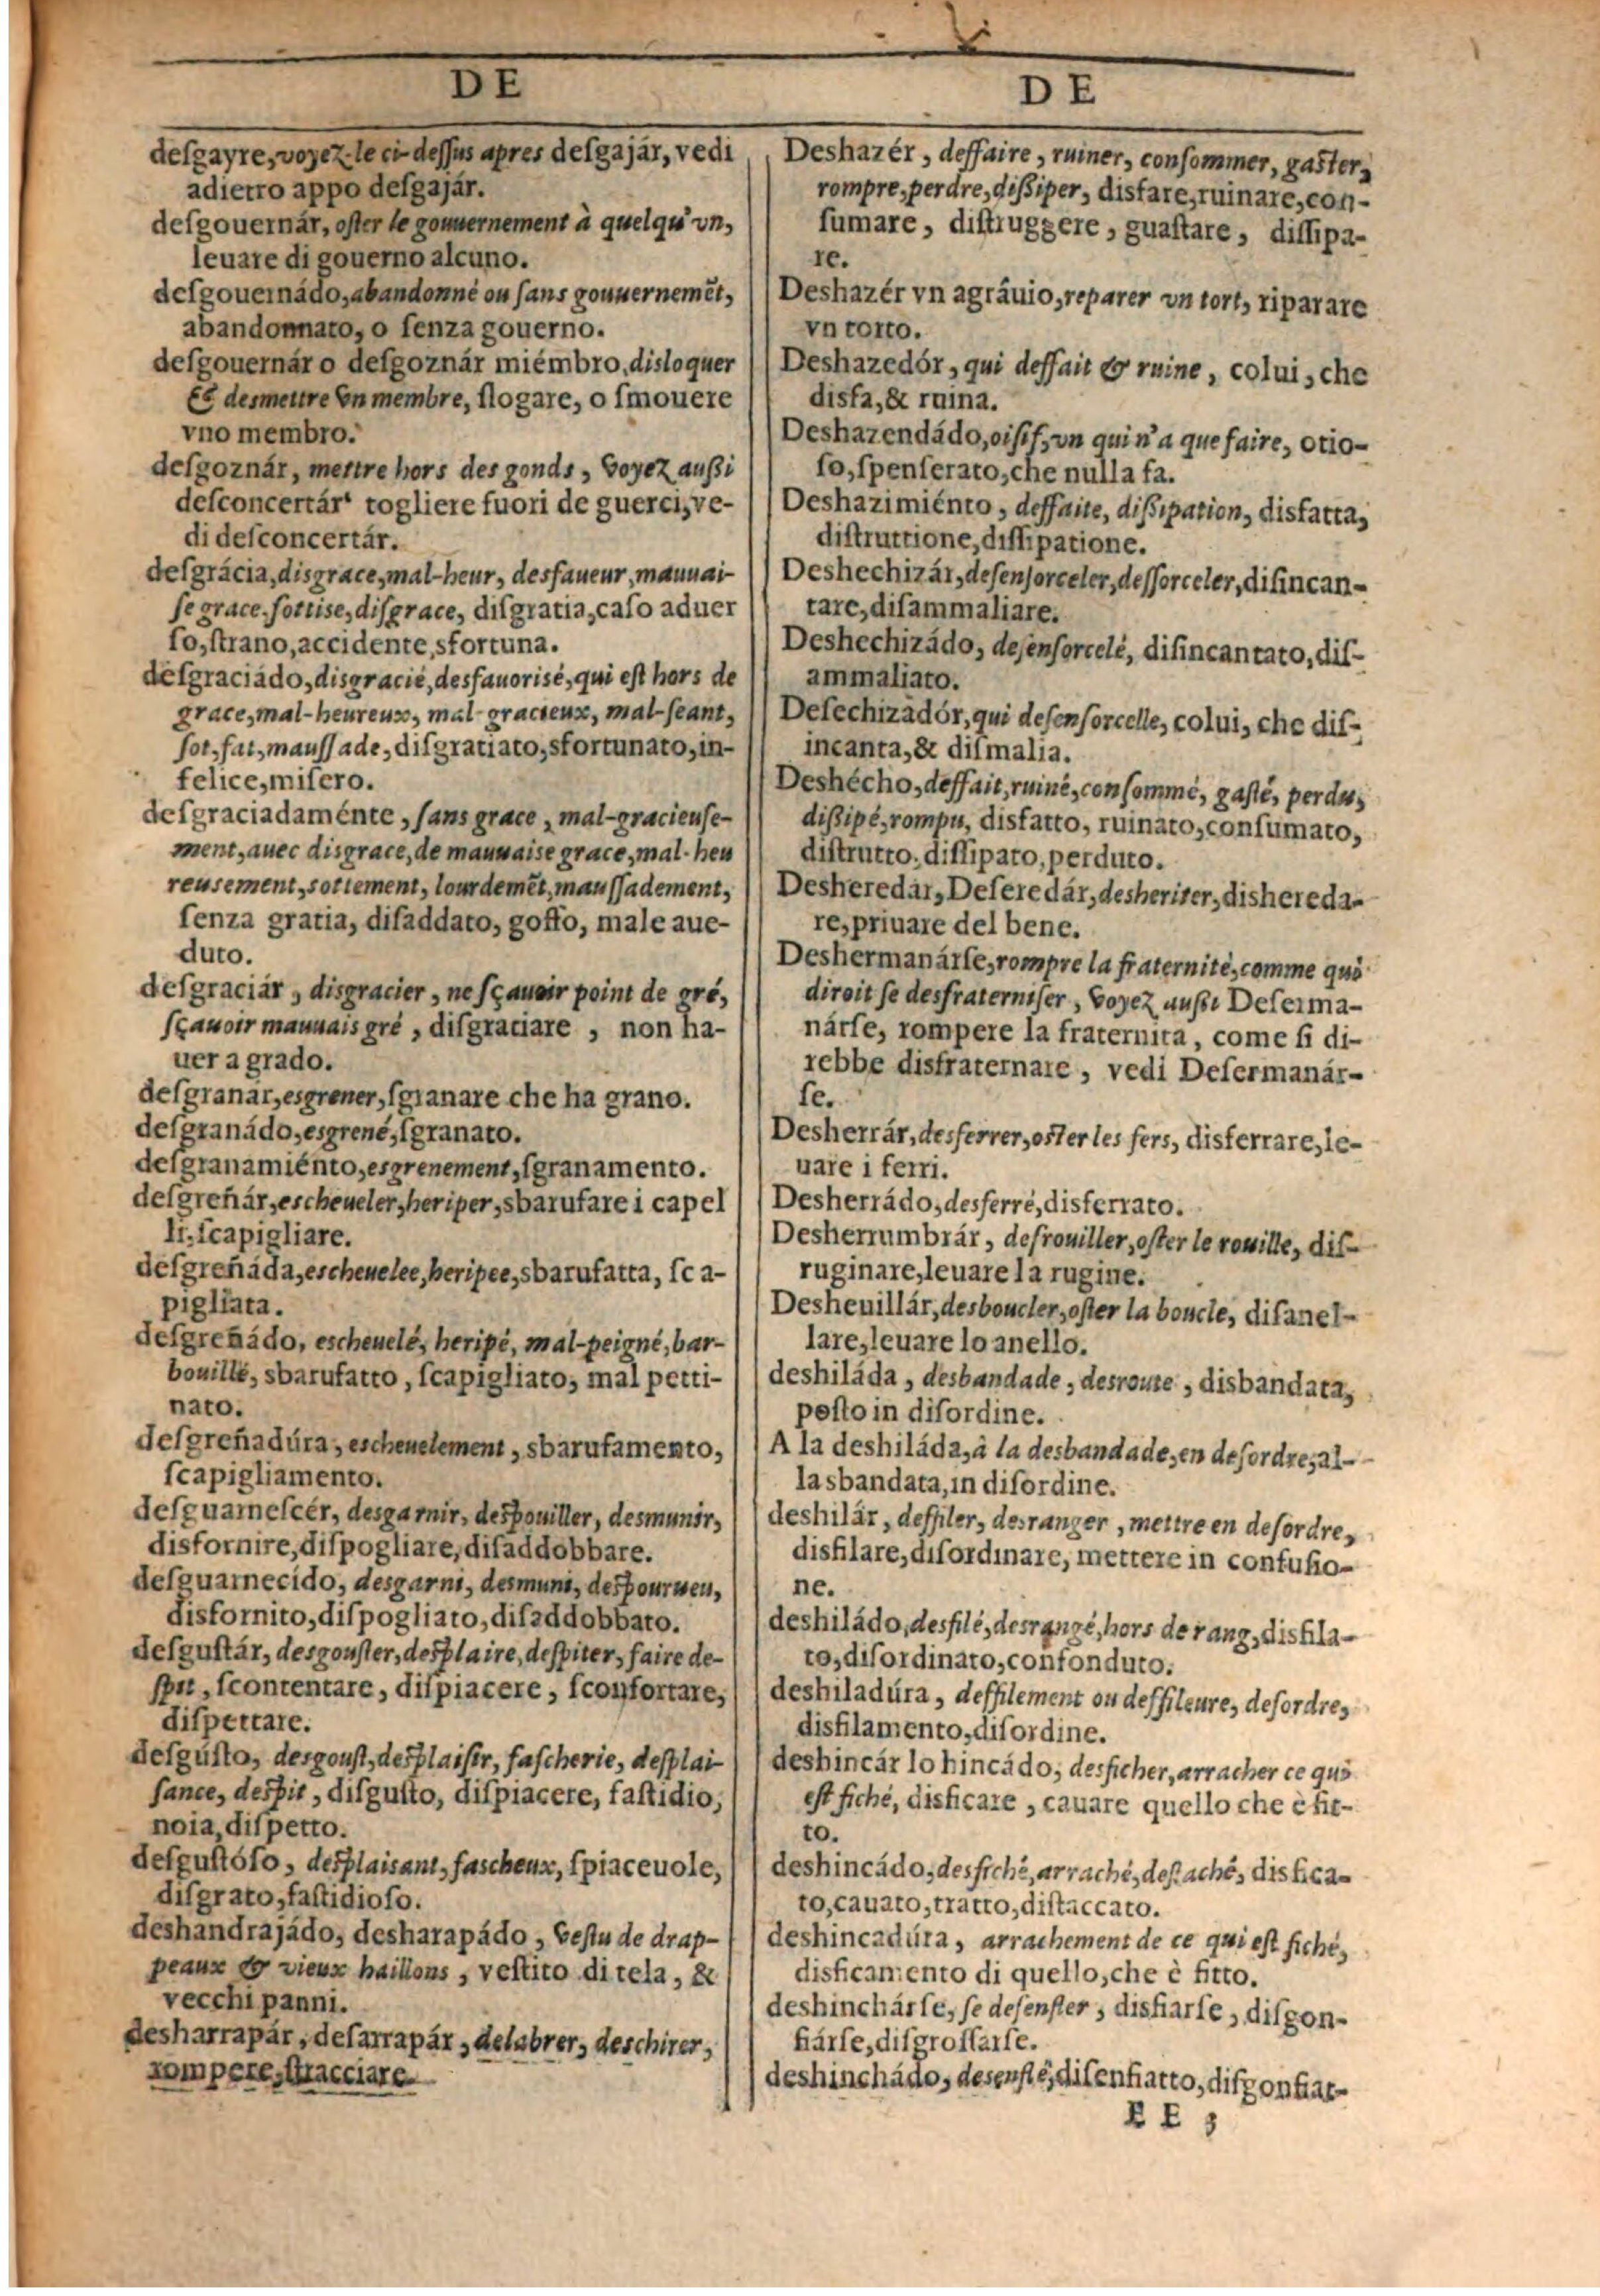 DE
desgayre, voyez-le ci-dessus apres desgajár, vedi
adietro appo desgajár.
desgouernár, oster le gouuernement à quelqu'vn,
leuare di gouerno alcuno.
desgouernádo, abandonné ou sans gouuernemẽt,
abandonnato, o senza gouerno.
desgouernár o desgoznár miémbro, disloquer
& desmettre vn membre, slogare, o smouere
vno membro.
desgoznár, mettre hors des gonds, voyez aussi
desconcertár, togliere fuori de guerci, ve-
di desconcertár.
desgrácia, disgrace, mal-heur, desfaueur, mauuai-
se grace, sottise, disgrace, disgratia, caso aduer
so, strano, accidente, sfortuna.
desgraciádo, disgracié, desfauorisé, qui est hors de
grace, mal-heureux, mal-gracieux, mal-seant,
sot, fat, maussade, disgratiato, sfortunato, in-
felice, misero.
desgraciadaménte, sans grace, mal-gracieuse-
ment, auec disgrace, de mauuaise grace, mal-heu
reusement, sottement, lourdemẽt, maussadement,
senza gratia, disaddato, goffo, male aue-
duto.
desgraciár, disgracier, ne sçauoir point de gré,
sçauoir mauuais gré, disgratiare, non ha-
uer a grado.
desgranár, esgrener, sgranare che ha grano.
desgranádo, esgrené, sgranato.
desgranamiénto, esgrenement, sgranamento.
desgreñár, escheueler, heriper, sbarufare i capel
li, scapigliare.
desgreñáda, escheuelee, heripee, sbarufatta, sca-
pigliata.
desgreñádo, escheuelé, heripé, mal-peigné, bar-
bouillé, sbarufatto, scapigliato, mal petti-
nato.
desgreñadúra, escheuelement, sbarufamento,
scapigliamento.
desguarnescér, desgarnir, despouiller, desmunir,
disfornire, dispogliare, disaddobbare.
desguarnecído, desgarni, desmuni, despourueu,
disfornito, dispogliato, disaddobbato.
desgustár, desgouster, desplaire, despiter, faire de-
spit, scontentare, dispiacere, sconfortare,
dispettare.
desgústo, desgoust, desplaisir, fascherie, desplai-
sance, despit, disgusto, dispiacere, fastidio,
noia, dispetto.
desgustóso, desplaisant, fascheux, spiaceuole,
disgrato, fastidioso.
deshandrajádo, desharapádo, vestu de drap-
peaux & vieux haillons, vestito di tela, &
vecchi panni.
desharrapár, desarrapár, delabrer, deschirer,
rompere, stracciare.
DE
Deshazér, deffaire, ruiner, consommer, gaster,
rompre, perdre, dissiper, disfare, ruinare, con-
sumare, distruggere, guastare, dissipa-
re.
Deshazér vn agráuio, reparer vn tort, riparare
vn torto.
Deshazedór, qui deffait & ruine, colui, che
disfa, & ruina.
Deshazendádo, oisif, vn qui n'a que faire, otio-
so, spenserato, che nulla fa.
Deshazimiénto, deffaite, dissipation, disfatta,
distruttione, dissipatione.
Deshechizár, desensorceler, dessorceler, disincan-
tare, disammaliare.
Deshechizádo, desensorcelé, disincantato, dis-
ammaliato.
Desechizadór, qui desensorcelle, colui, che dis-
incanta, & dismalia.
Deshécho, deffait, ruiné, consommé, gasté, perdu,
dissipé, rompu, disfatto, ruinato, consumato,
distrutto, dissipato, perduto.
Desheredár, Deseredár, desheriter, dishereda-
re, priuare del bene.
Deshermanárse, rompre la fraternité, comme qui
diroit se desfraterniser, voyez aussi Deserma-
nárse, rompere la fraternita, come si di-
rebbe disfraternare, vedi Desermanár-
se.
Desherrár, desferrer, oster les fers, disferrare, le-
uare i ferri.
Desherrádo, desferré, disferrato.
Desherrumbrár, desrouiller, oster le rouille, dis-
ruginare, leuare la rugine.
Desheuillár, desboucler, oster la boucle, disanel-
lare, leuare lo anello.
deshiláda, desbandade, desroute, disbandata,
posto in disordine.
A la deshiláda, à la desbandade, en desordre, al-
la sbandata, in disordine.
deshilár, deffiler, desranger, mettre en desordre,
disfilare, disordinare, mettere in confusio-
ne.
deshiládo, desfilé, desrangé, hors de rang, disfila-
to, disordinato, confonduto.
deshiladúra, deffilement ou deffileure, desordre,
disfilamento, disordine.
deshincár lo hincádo, desficher, arracher ce qui
est fiché, disficare, cauare quello che è fit-
to.
deshincádo, desfiché, arraché, destaché, disfica-
to, cauato, tratto, distaccato.
deshincadúra, arrachement de ce qui est fiché,
disficamento di quello, che è fitto.
deshinchárse, se desenfler, disfiarse, disgon-
fiárse, disgrossarse.
deshinchádo, desenflé, disenfiatto, disgonfiat-
EE 3